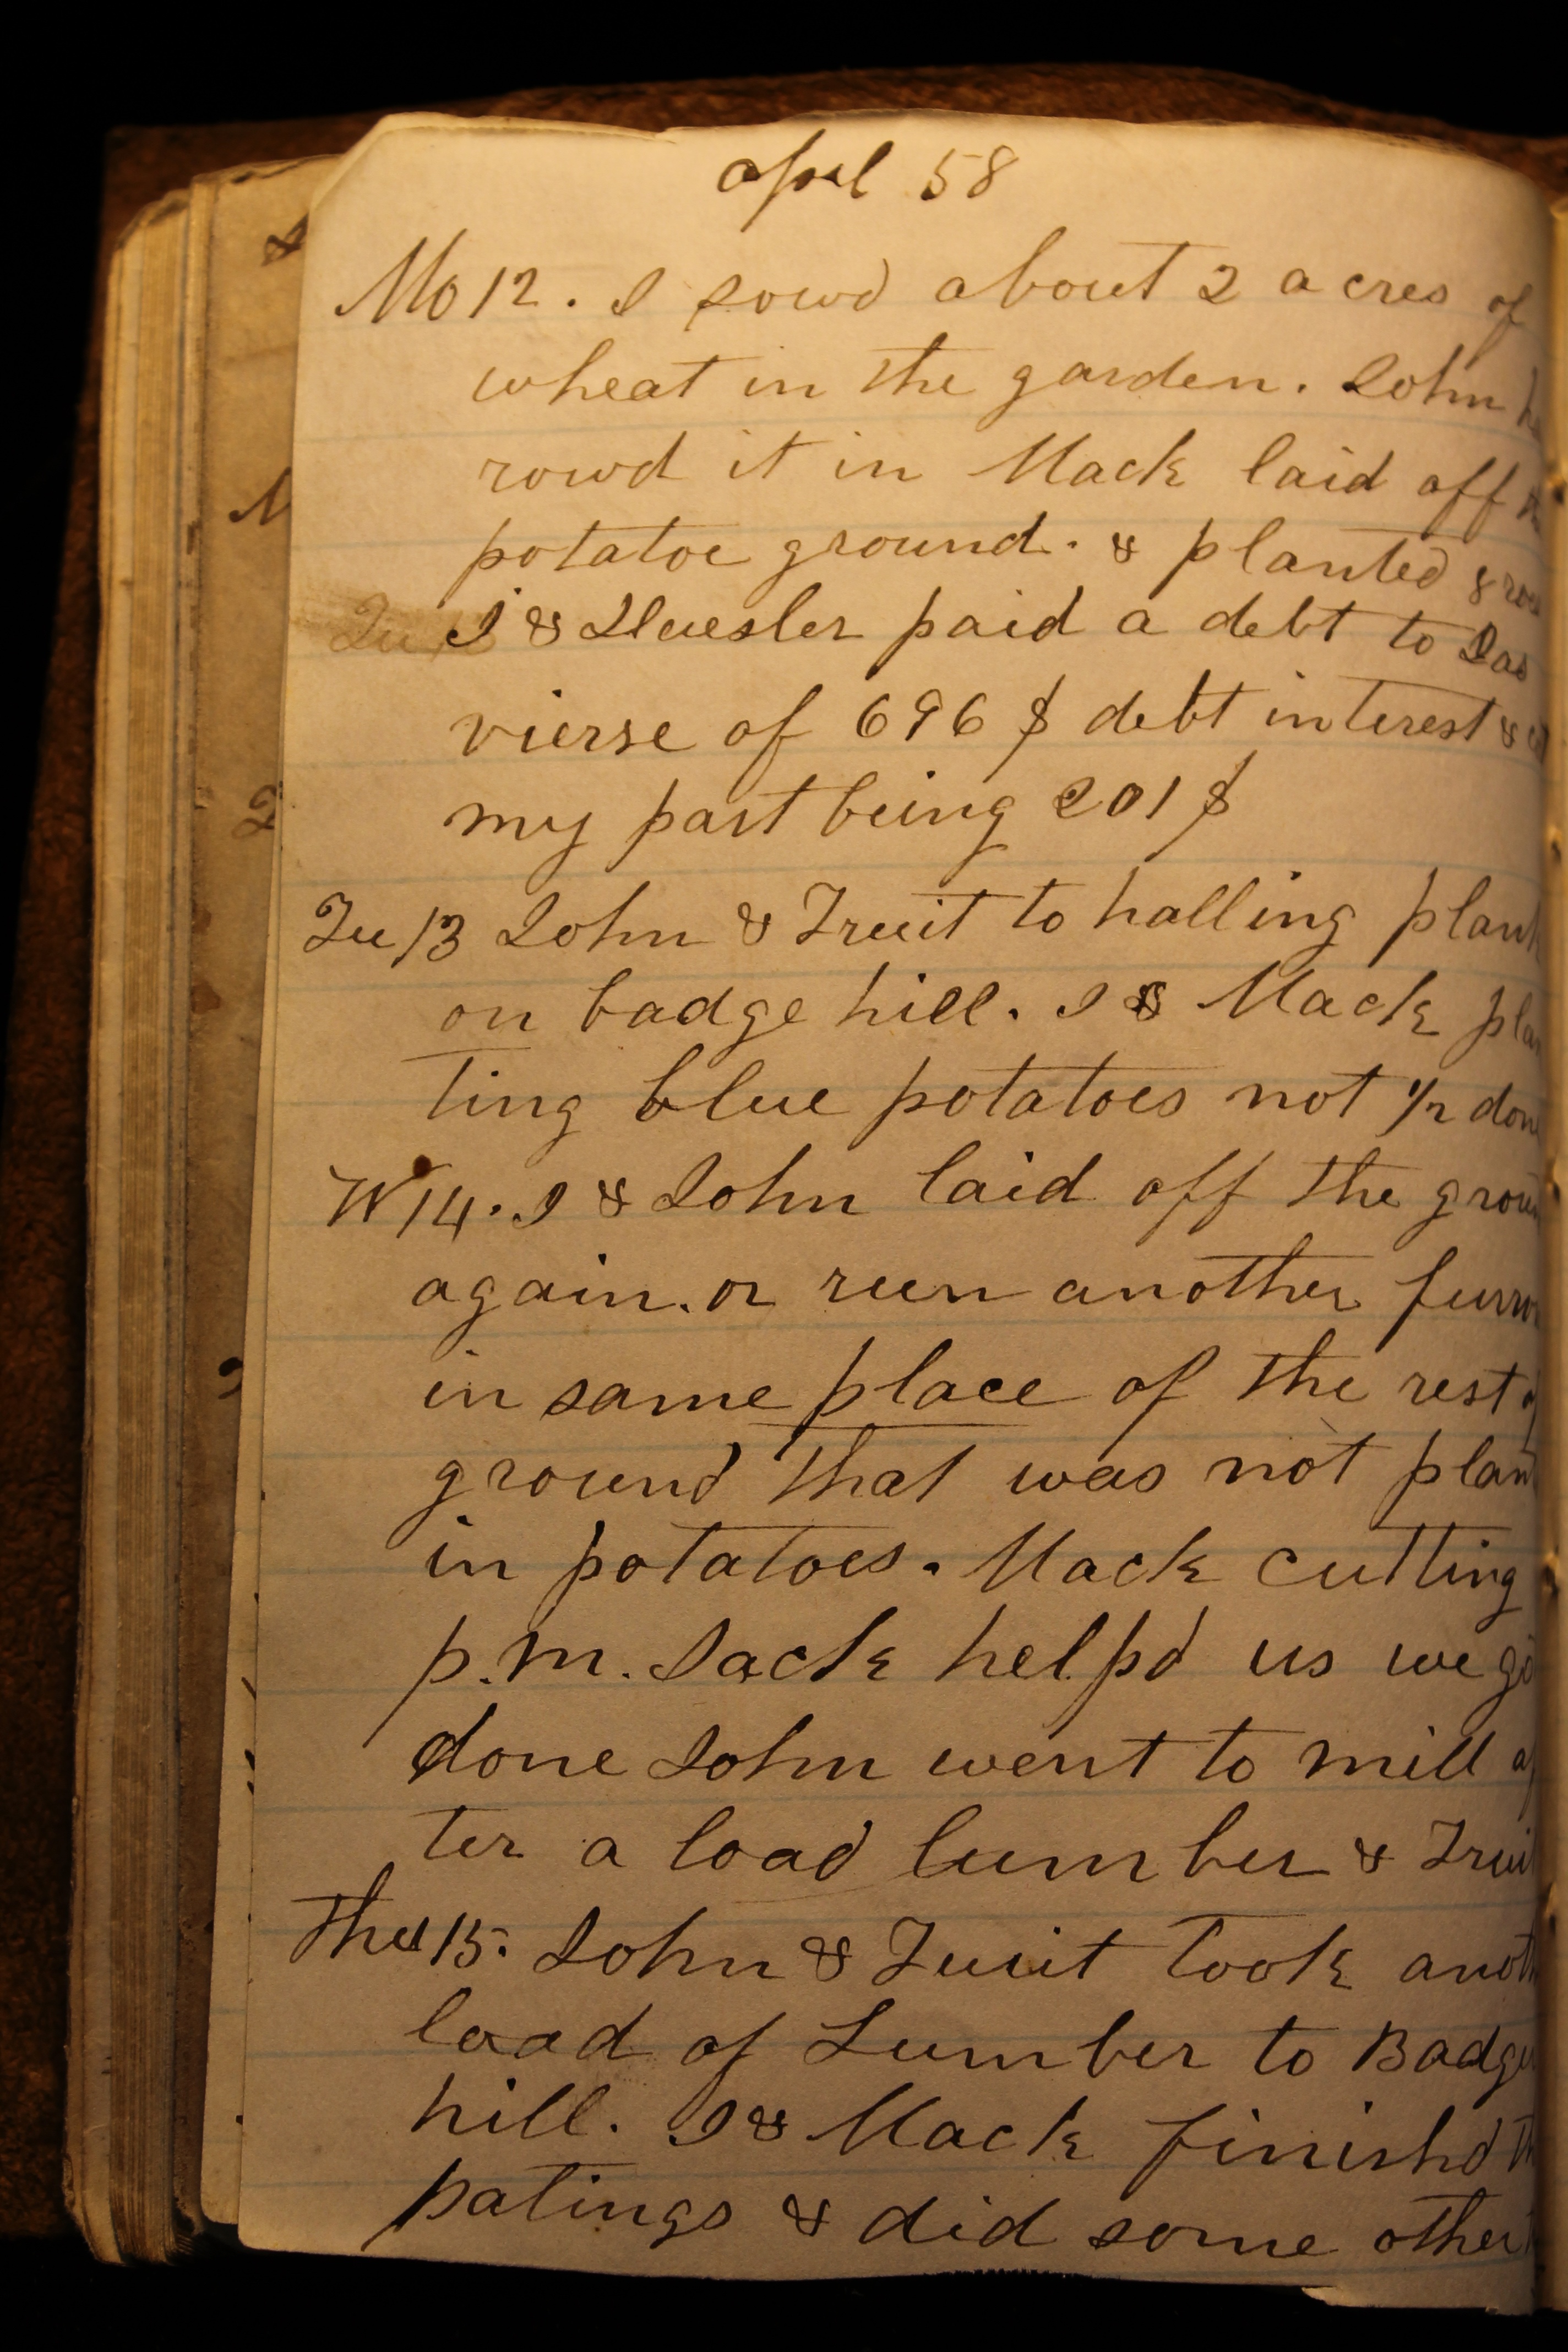 april 58
Mo 12. I sowd about 2 acres of
wheat in the garden. John
rowd it in Mack laid off
potatoe ground. & planted
I & paid a debt to
vierse of 696 $ debt interest &
my part being 201 $
Tu 13 John & Truit to halling
on badge hill. I & Mack
ting blue potatoes not 1/2
W 14. I & John laid off the
again. or run another
in same place of the rest
ground that was not
in potatoes. Mack cutting
p.m. Jack helpd us we
done John went to mill
ter a load lumber &
Thu 15. John & Truit took
load of Lumber to
hill. I & Mack finishd
patings & did some other